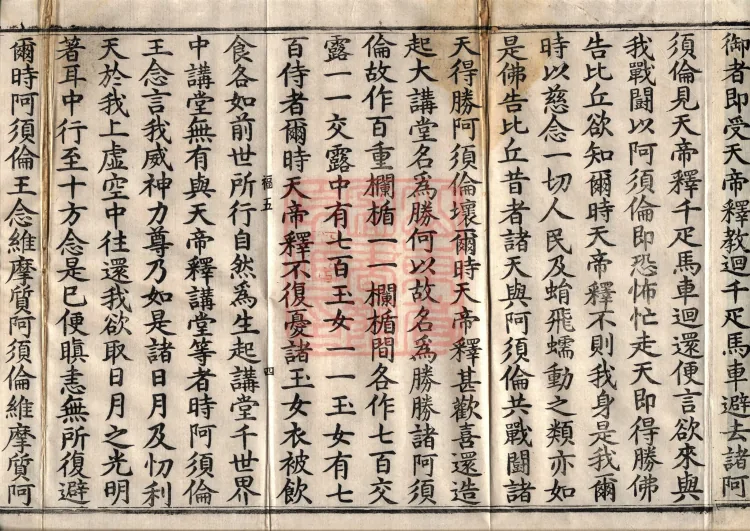 御者即受天帝釋教迴千疋馬車避去諸阿
須倫見天帝釋千疋馬車迴還便言欲來與
我戰鬪以阿須倫即恐怖忙走天即得勝佛
告比丘欲知爾時天帝釋不則我身是我爾
時以慈念一切人民及蜎飛蠕動之類亦如
是佛告比丘昔者諸天與阿須倫共戰鬪諸
天得勝阿須倫壞爾時天帝釋甚歡喜還造
起大講堂名為勝何以故名為勝勝諸阿須
倫故作百重欄楯一一欄楯間各作七百交
露一一交露中有七百玉女一一玉女有七
百侍者爾時天帝釋不復憂諸玉女衣被飲
福五
四
食各如前世所行自然為生起講堂千世界
中講堂無有與天帝釋講堂等者時阿須倫
王念言我威神力尊乃如是諸日月及忉利
天於我上虛空中往還我欲取日月之光明
著耳中行至十方念是已便瞋恚無所復避
爾時阿須倫王念維摩質阿須倫維摩質阿